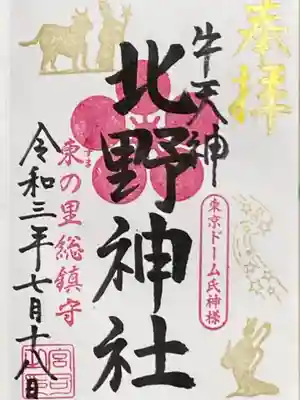 奉拝
牛天神
北野神社
東京ドーム氏神様
東の里総鎮守
令和三年七月十八日